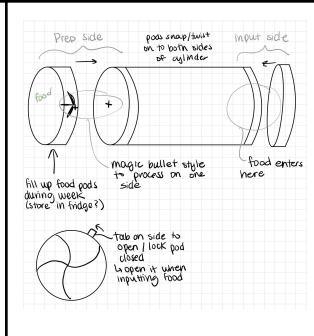 Prep side
pods snap/twist
on to both sides
of cylinder
input side
food
magic bullet style
to process on one
side
food enters
here
fill up food pods
during week
(store in fridge?)
tab on side to
open / lock pod
closed
↳ open it when
inputting food